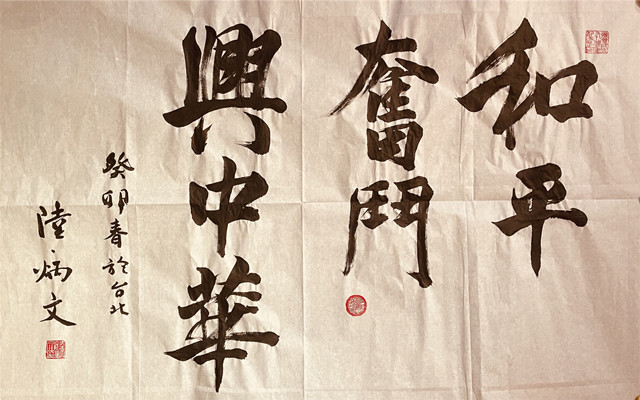 和平
奮鬥
興中華
癸卯春於台北
陸炳文